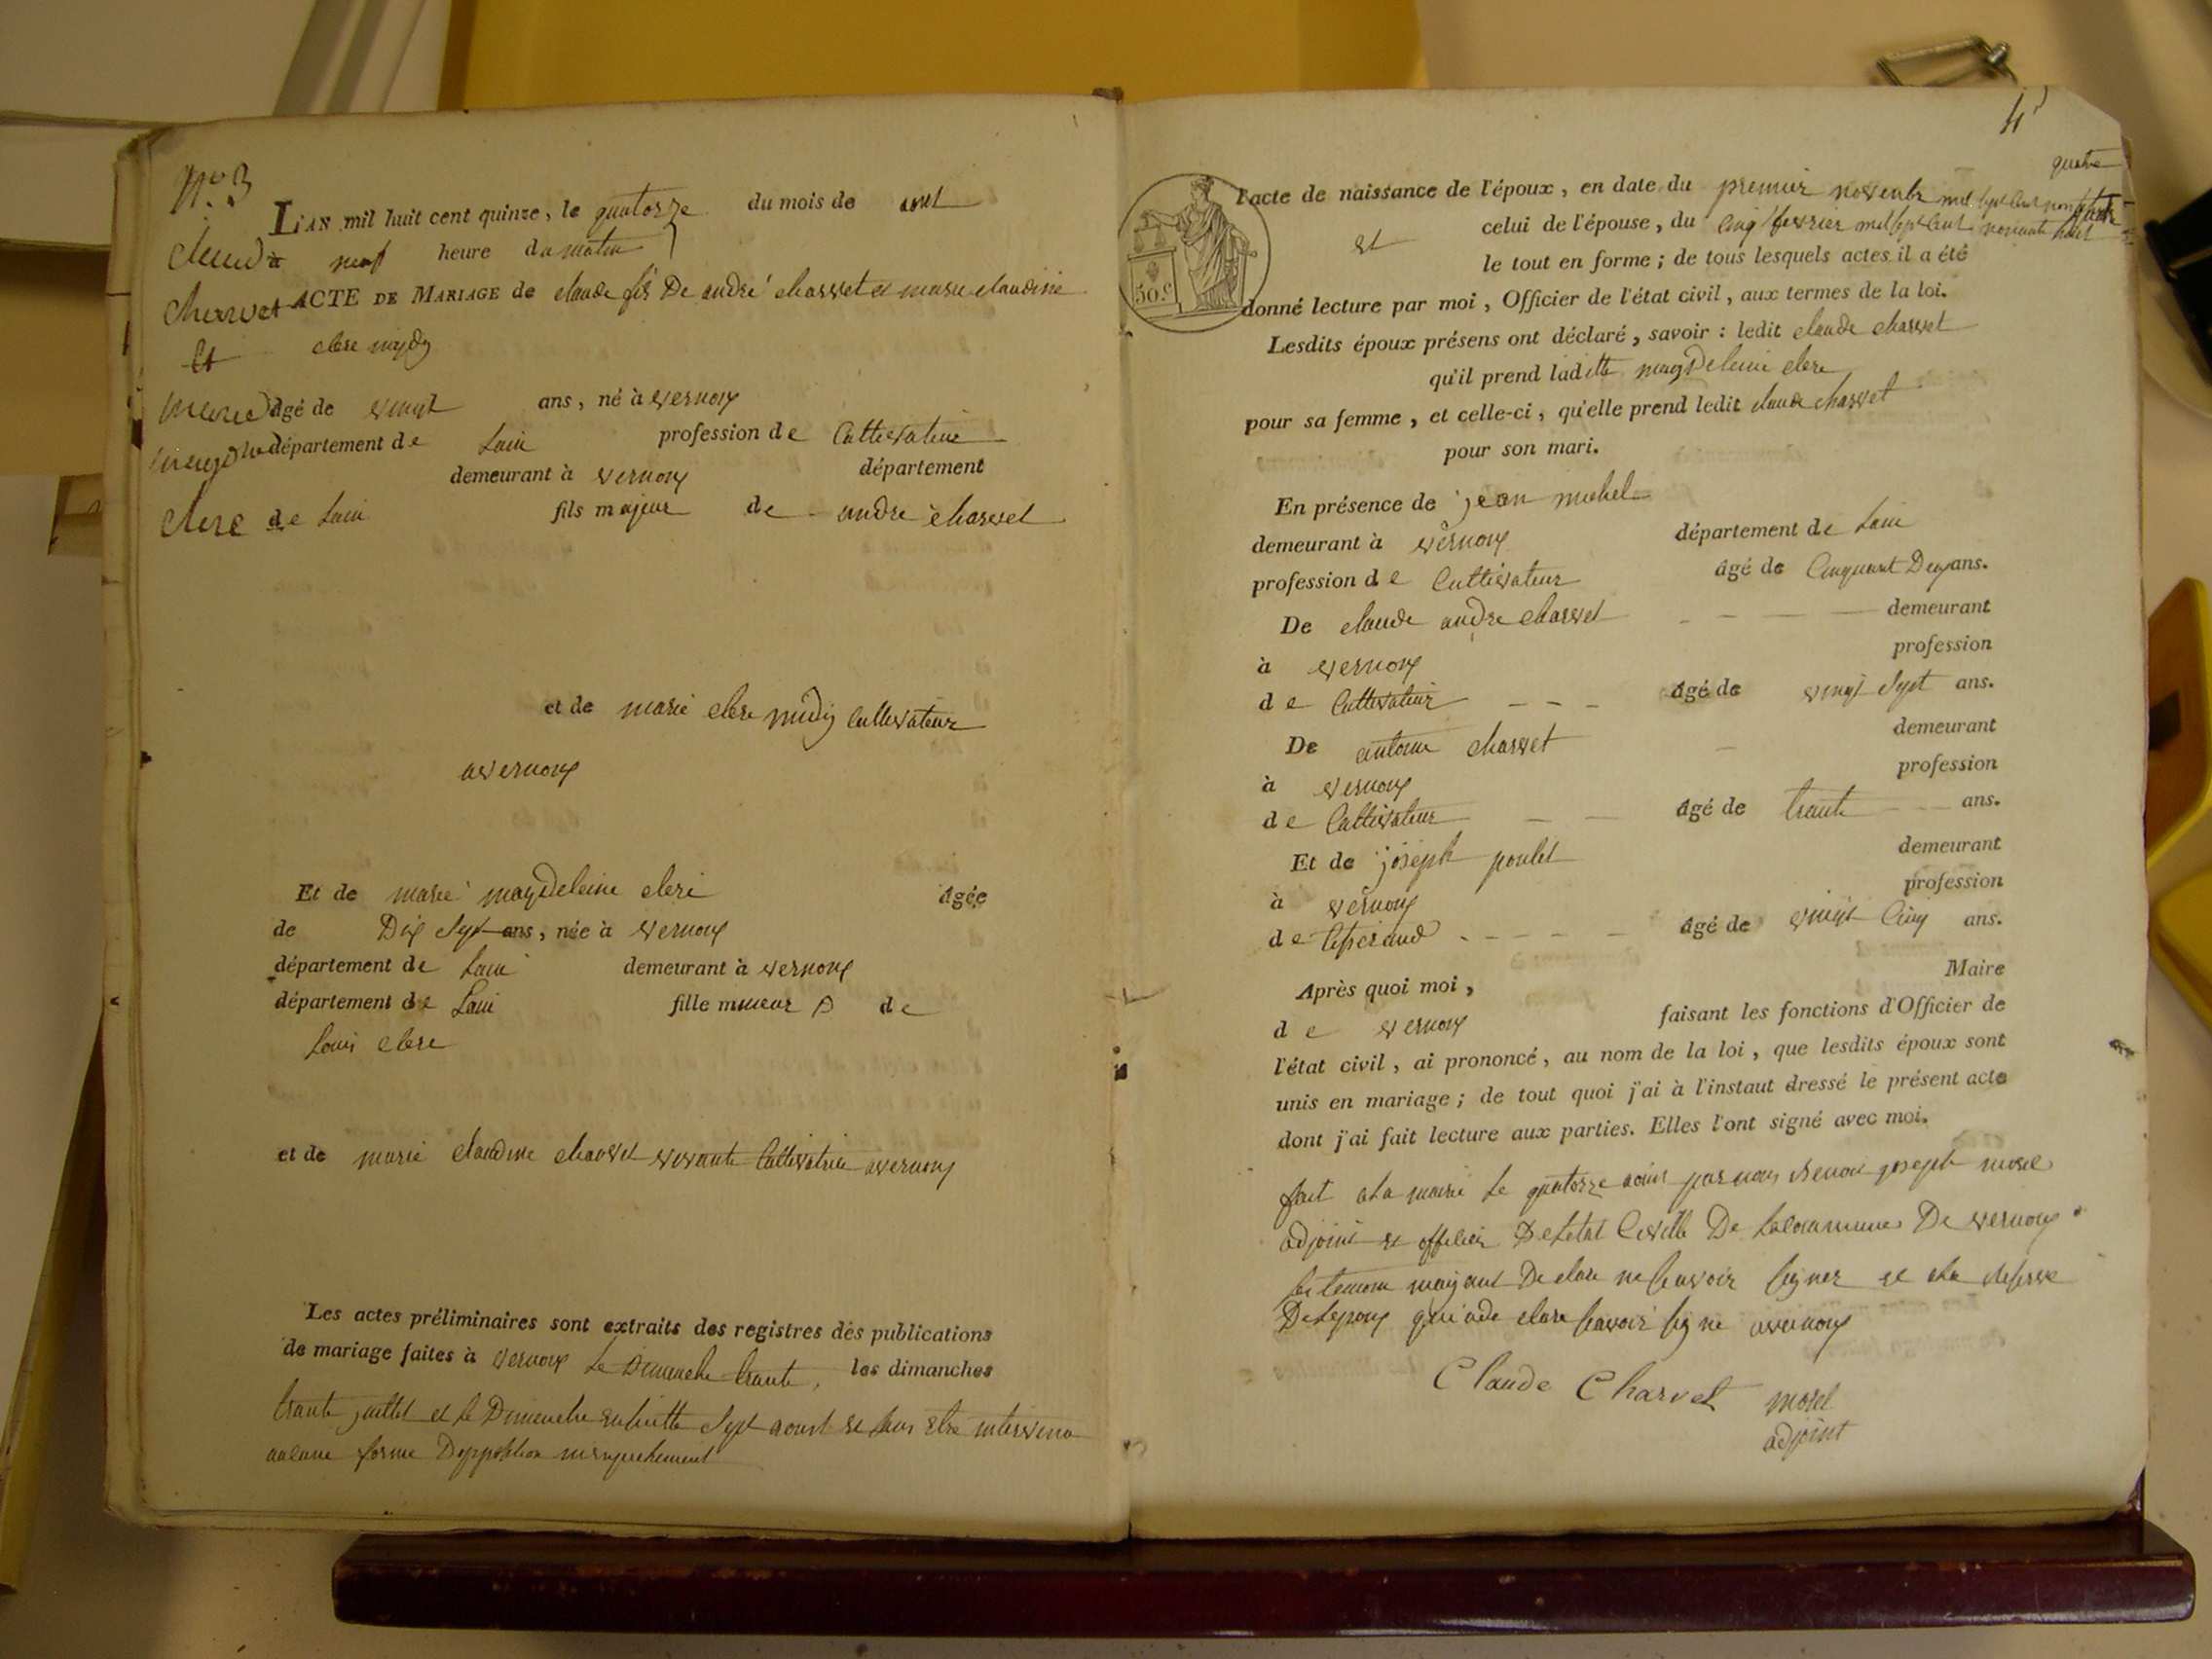 N.º 3
L'AN mil huit cent quinze, le quatorze du mois de aout
à neuf heure du matin
ACTE DE MARIAGE de claude fis De andré charvet et marie claudine
clere
Claude
Charvet
et
Marie
clere
âgé de vingt ans, né à vernoux
département de Lain profession de Cultivateur
demeurant à vernoux département
de Lain fils majeur de andre charvet
et de marie clere cultivateur
avernoux
Et de marie magdeleine clere âgée
de Dix sept ans, née à vernoux
département de Lain demeurant à vernoux
département de Lain fille mineur de
Louis clere
et de marie claudine charvet vivante Cultivatrice avernoux
Les actes préliminaires sont extraits des registres des publications
de mariage faites à vernoux le Dimanche trante, les dimanches
trante juillet et le Dimanche en suitte sept aoust et sans etre intervenu
aucune forme Dopposition
4
quatre
l'acte de naissance de l'époux, en date du premier novembre mil sept cent nonante
et celui de l'épouse, du cinq fevrier mil sept cent nonante huit
le tout en forme; de tous lesquels actes il a été
50.c
donné lecture par moi, Officier de l'état civil, aux termes de la loi.
Lesdits époux présens ont déclaré, savoir: ledit claude charvet
qu'il prend laditte magdeleine clere
pour sa femme, et celle-ci, qu'elle prend ledit claude charvet
pour son mari.
En présence de jean michel
demeurant à vernoux département de Lain
profession de Cultivateur âgé de Cinquant Deux ans.
De claude andre charvet demeurant
à vernoux profession
de Cultivateur âgé de vingt sept ans.
De antoine charvet demeurant
à vernoux profession
de Cultivateur âgé de trante ans.
Et de joseph poulet demeurant
à vernoux profession
de tisserand âgé de vingt Cinq ans.
Après quoi moi, Maire
de vernoux faisant les fonctions d'Officier de
l'état civil, ai prononcé, au nom de la loi, que lesdits époux sont
unis en mariage; de tout quoi j'ai à l'instaut dressé le présent acte
dont j'ai fait lecture aux parties. Elles l'ont signé avec moi.
fait a la mairie le quatorze par nous joseph morel
adjoint et officier De letat Civille De la commune De vernoux
les temoin mayant De clare ne savoir signer et a la reserve
De lepoux qui a de clare savoir signe avernoux
Claude Charvet morel
adjoint